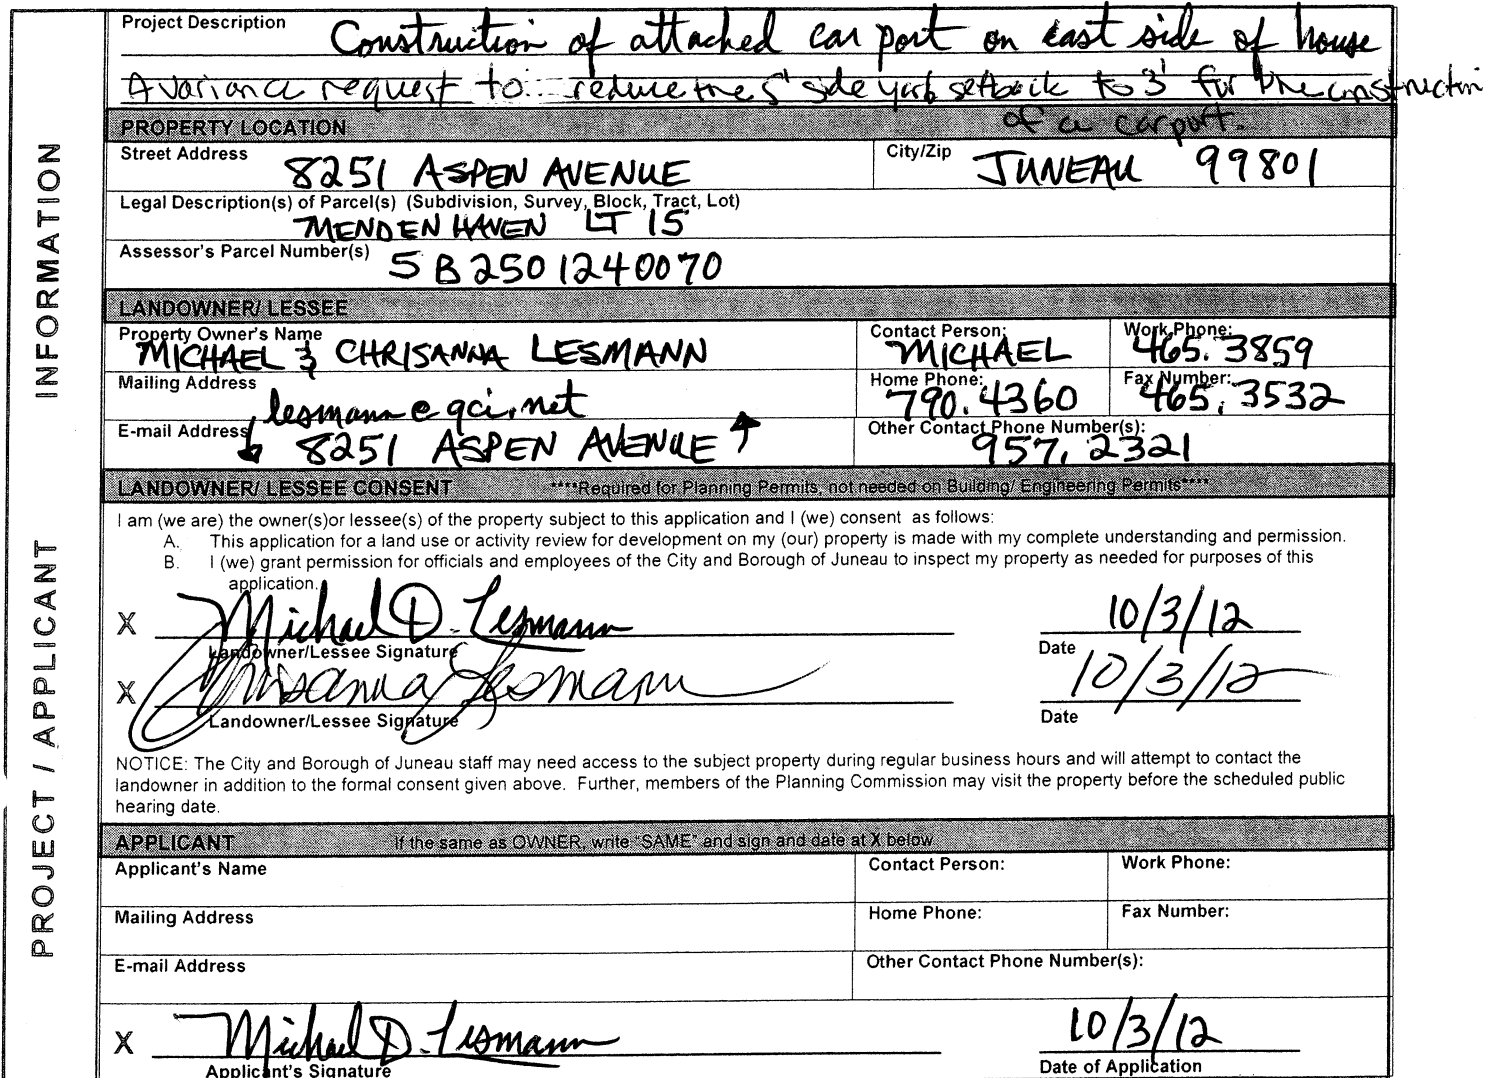 Project Description Construction of attached car port on east side of house
A variance request to reduce the 5' side yard setback to 3' for the construction
of a carport.
PROPERTY LOCATION
Street Address 8251 ASPEN AVENUE City/Zip JUNEAU 99801
Legal Description(s) of Parcel(s) (Subdivision, Survey, Block, Tract, Lot)
MENDENHAVEN LT 15
Assessor's Parcel Number(s) 5B2501240070
LANDOWNER/ LESSEE
Property Owner's Name Contact Person: Work Phone:
MICHAEL & CHRISANNA LESMANN MICHAEL 465.3859
Mailing Address Home Phone: Fax Number:
lesmann@gci.net 790.4360 465.3532
E-mail Address Other Contact Phone Number(s):
8251 ASPEN AVENUE 957.2321
LANDOWNER/ LESSEE CONSENT ****Required for Planning Permits, not needed on Building/ Engineering Permits****
I am (we are) the owner(s)or lessee(s) of the property subject to this application and I (we) consent as follows:
A. This application for a land use or activity review for development on my (our) property is made with my complete understanding and permission.
B. I (we) grant permission for officials and employees of the City and Borough of Juneau to inspect my property as needed for purposes of this
application.
X Michael D. Lesmann 10/3/12
Landowner/Lessee Signature Date
X Chrisanna Lesmann 10/3/12
Landowner/Lessee Signature Date
NOTICE: The City and Borough of Juneau staff may need access to the subject property during regular business hours and will attempt to contact the
landowner in addition to the formal consent given above. Further, members of the Planning Commission may visit the property before the scheduled public
hearing date.
APPLICANT If the same as OWNER, write "SAME" and sign and date at X below
Applicant's Name Contact Person: Work Phone:
Mailing Address Home Phone: Fax Number:
E-mail Address Other Contact Phone Number(s):
X Michael D. Lesmann 10/3/12
Applicant's Signature Date of Application
PROJECT / APPLICANT INFORMATION